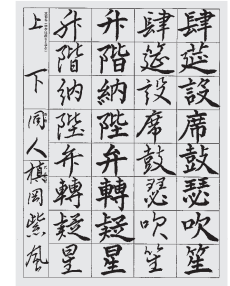 肆筵設席鼓瑟吹笙
肆筵設席鼓瑟吹笙
升階納陛弁轉疑星
升階納陛弁轉疑星
上下同人槙岡紫風